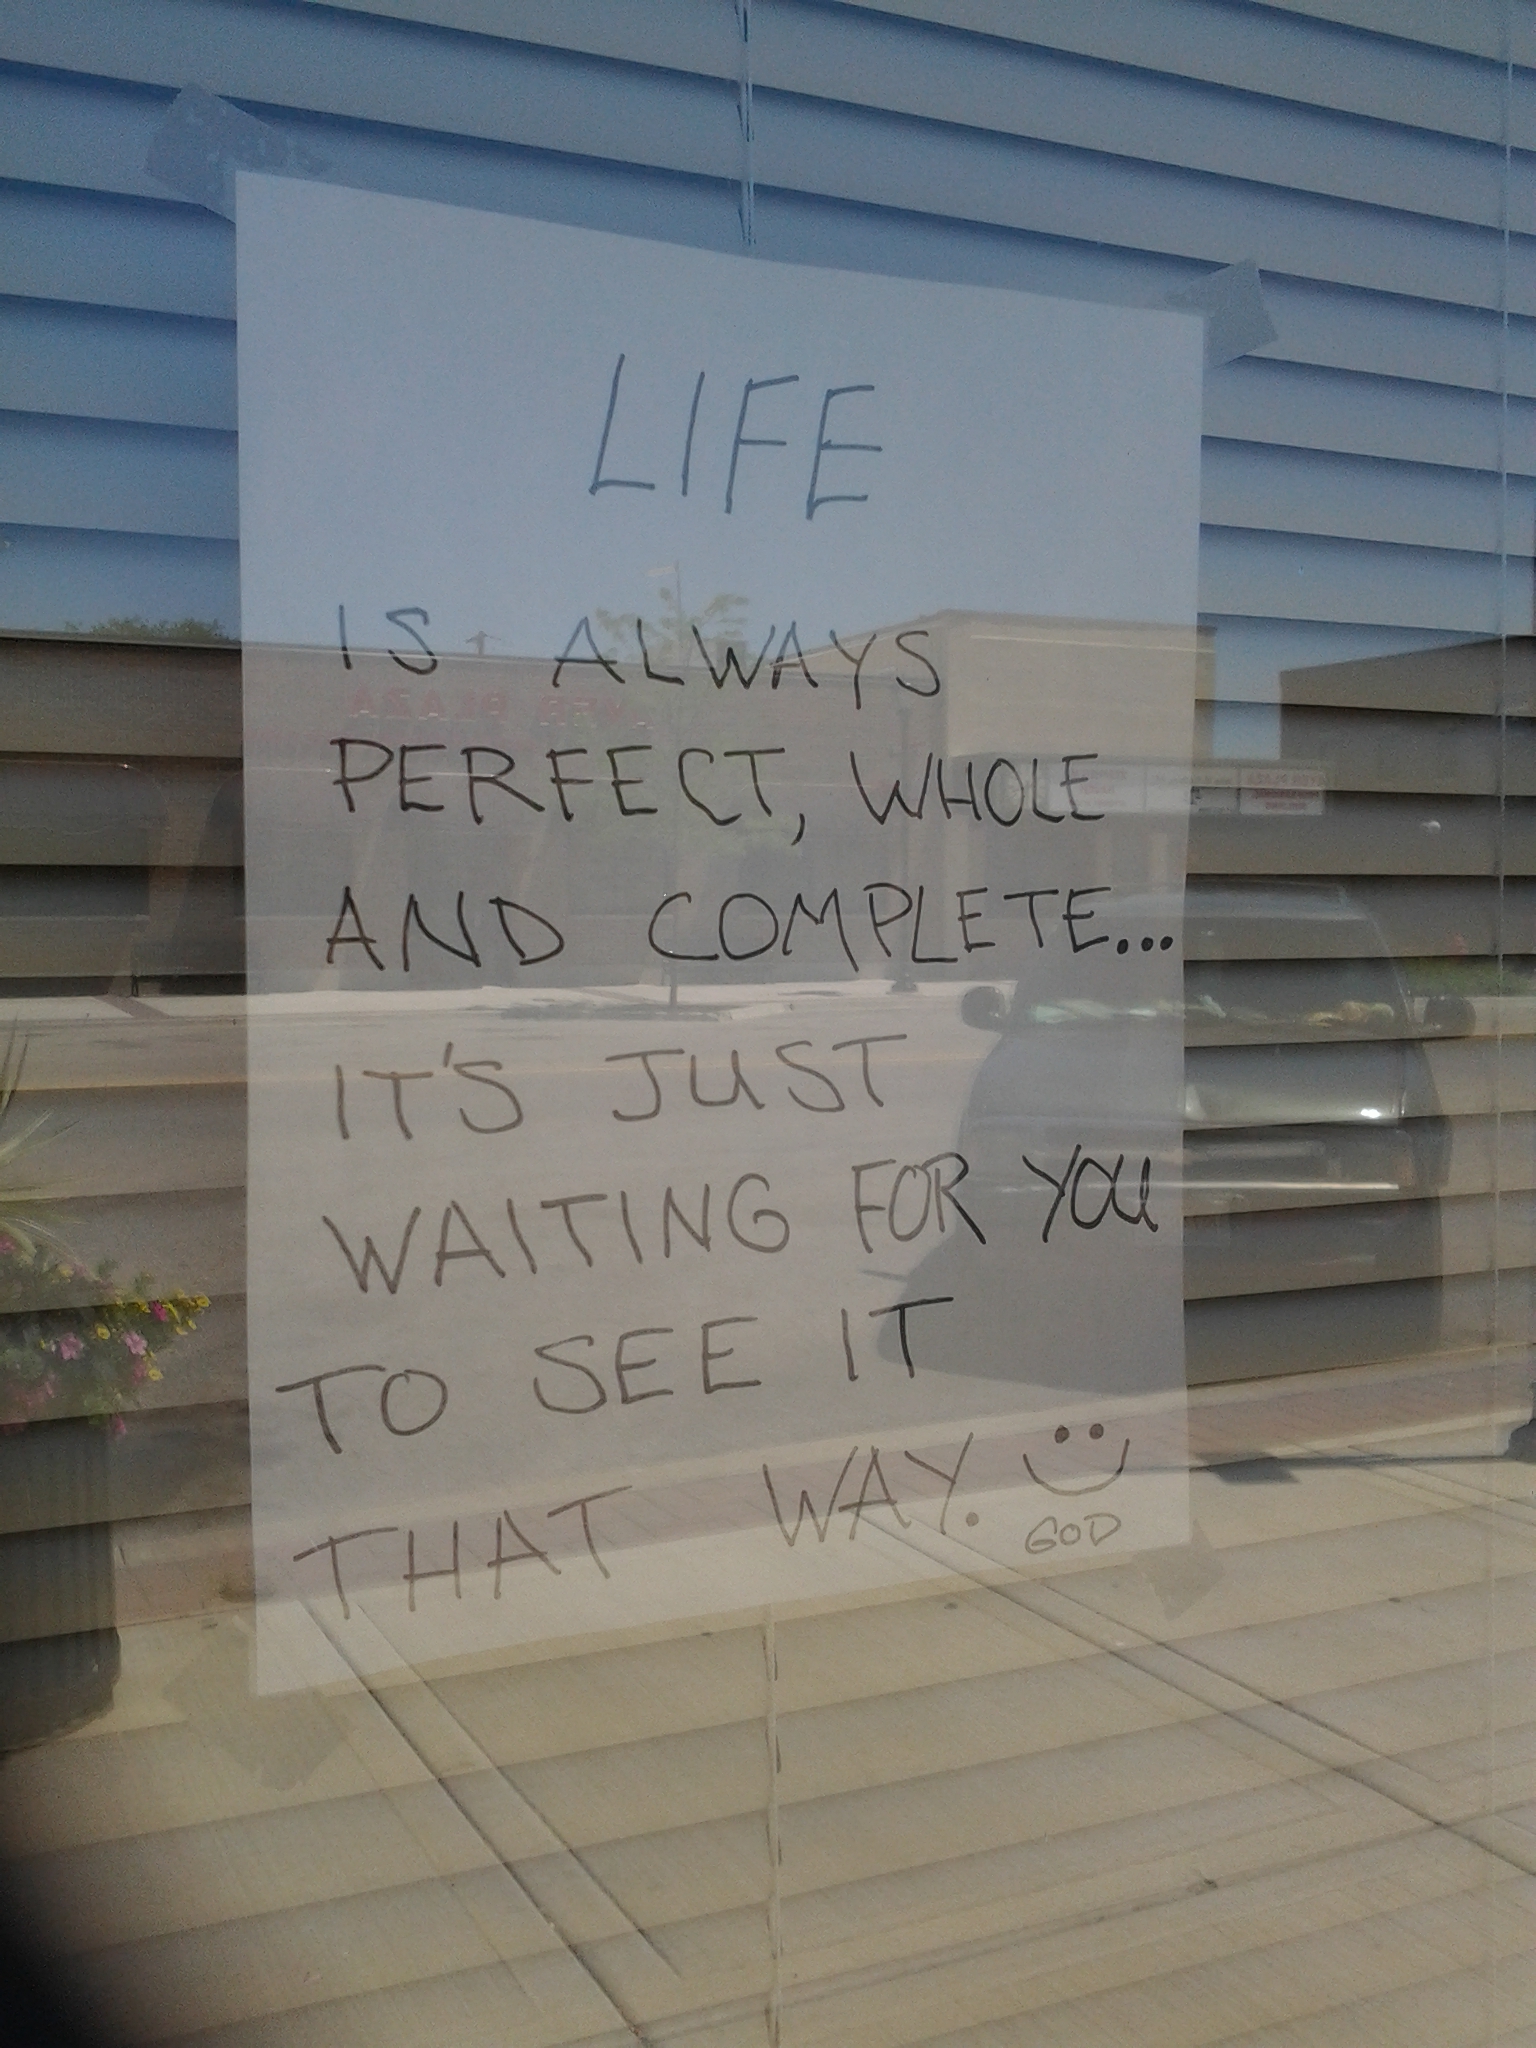 LIFE
IS ALWAYS
PERFECT, WHOLE
AND COMPLETE...
IT'S JUST
WAITING FOR YOU
TO SEE IT
THAT WAY.
GOD